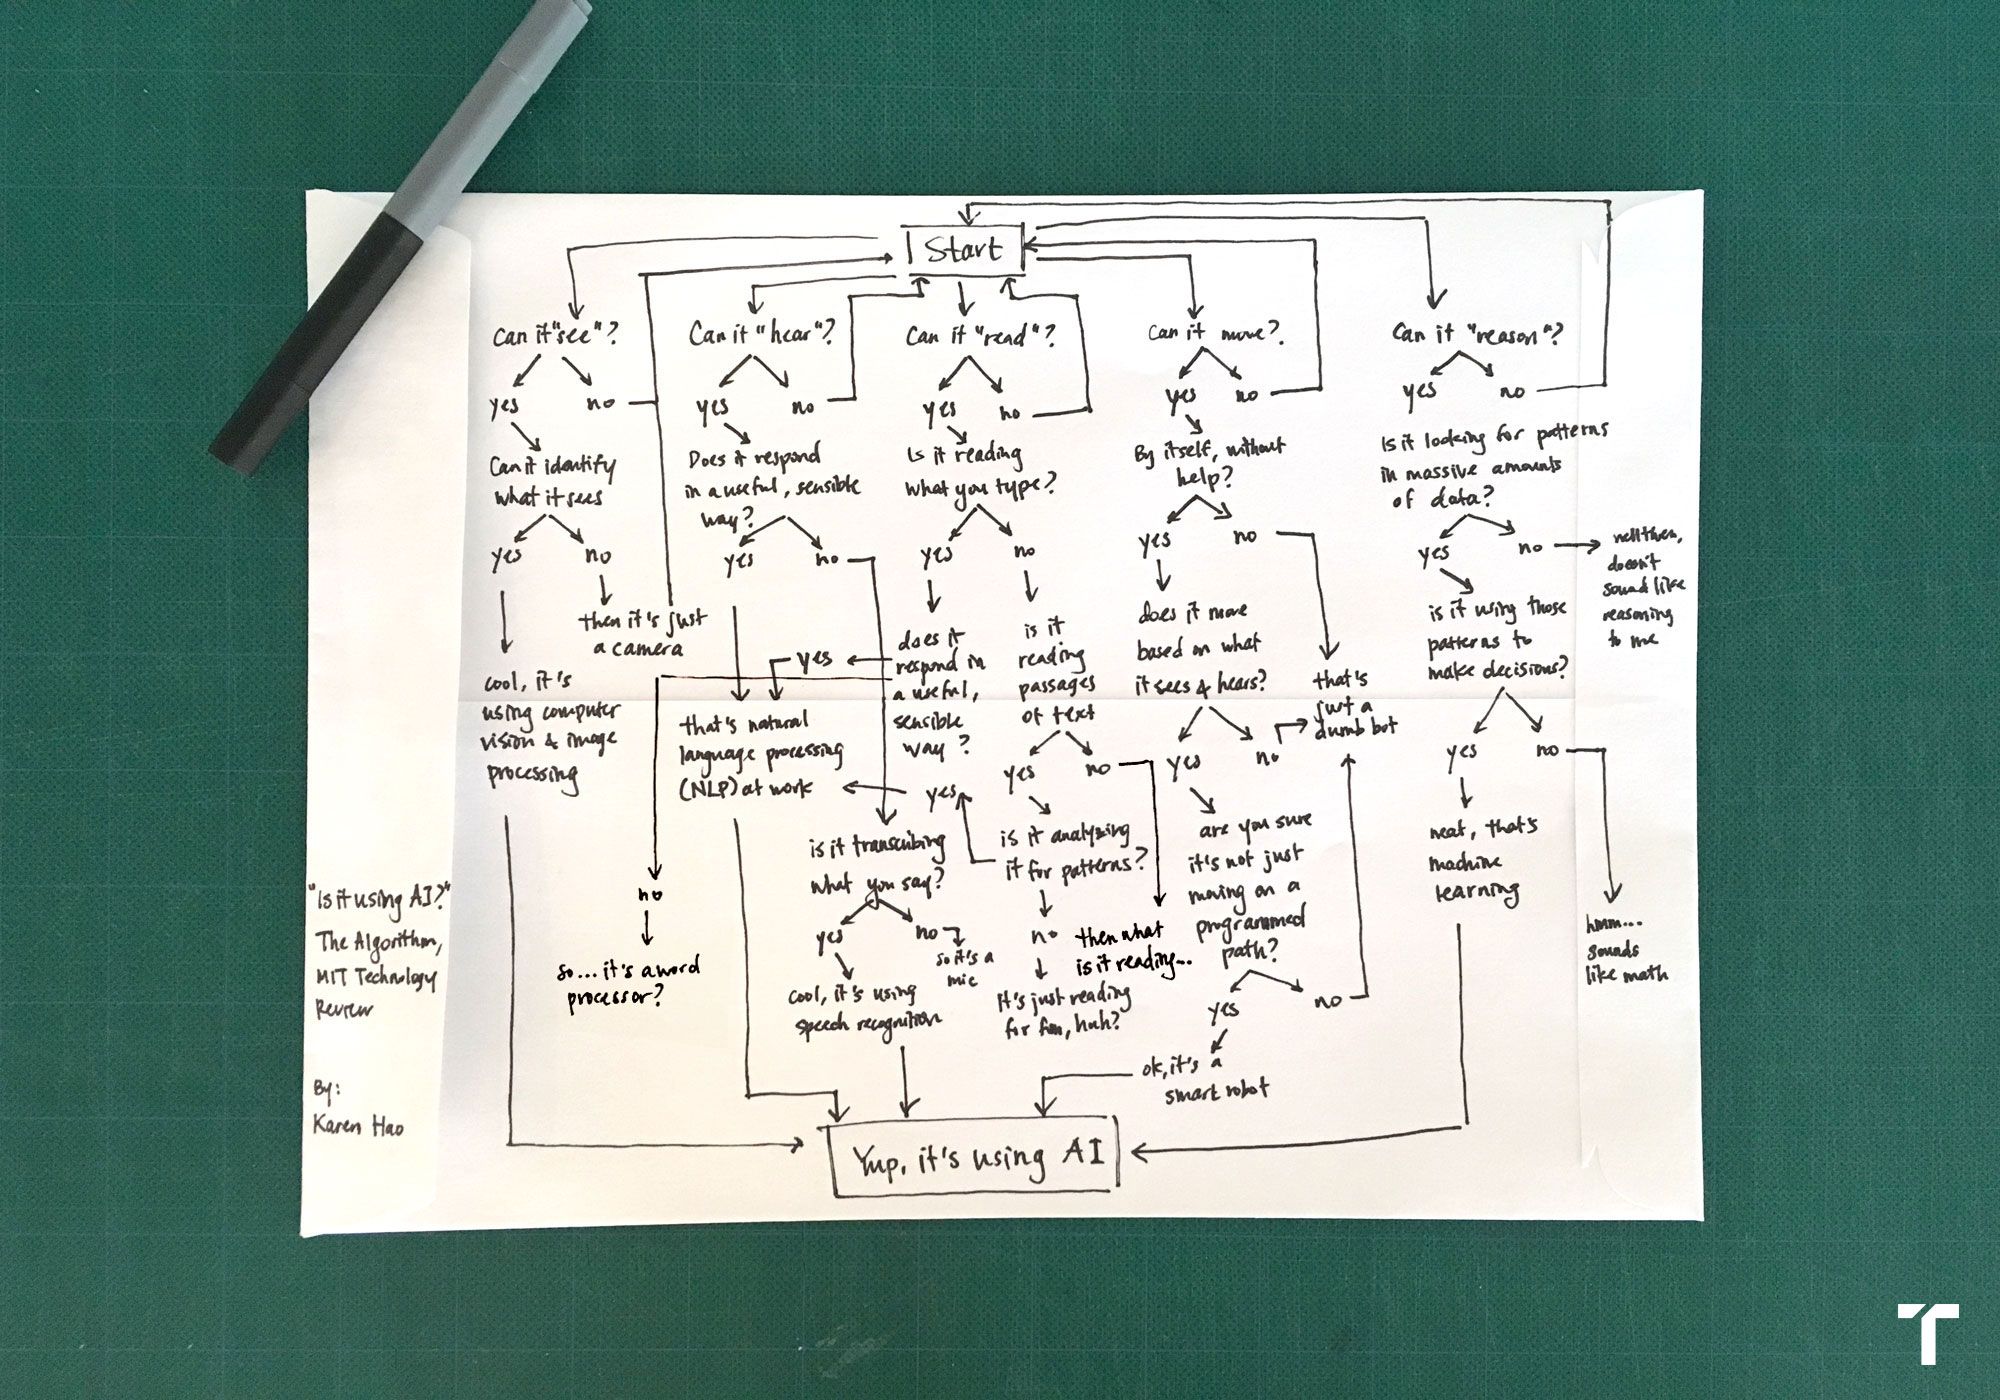 Start
Can it "see"?
yes
no
Can it identify
what it sees
yes
no
then it's just
a camera
cool, it's
using computer
vision & image
processing
Can it "hear"?
yes
no
Does it respond
in a useful, sensible
way?
yes
no
that's natural
language processing
(NLP) at work
is it transcribing
what you say?
yes
no
so it's a
mic
cool, it's using
speech recognition
Can it "read"?
yes
no
Is it reading
what you type?
yes
no
does it
respond in
a useful,
sensible
way?
yes
no
so... it's a word
processor?
is it
reading
passages
of text
yes
no
then what
is it reading...
is it analyzing
it for patterns?
yes
no
It's just reading
for fun, huh?
Can it move?
yes
no
By itself, without
help?
yes
no
that's
just a
dumb bot
does it move
based on what
it sees & hears?
yes
no
are you sure
it's not just
moving on a
programmed
path?
yes
no
ok, it's a
smart robot
Can it "reason"?
yes
no
Is it looking for patterns
in massive amounts
of data?
yes
no
well then,
doesn't
sound like
reasoning
to me
is it using those
patterns to
make decisions?
yes
no
hmm...
sounds
like math
neat, that's
machine
learning
Yup, it's using AI
"Is it using AI?"
The Algorithm,
MIT Technology
Review
By:
Karen Hao